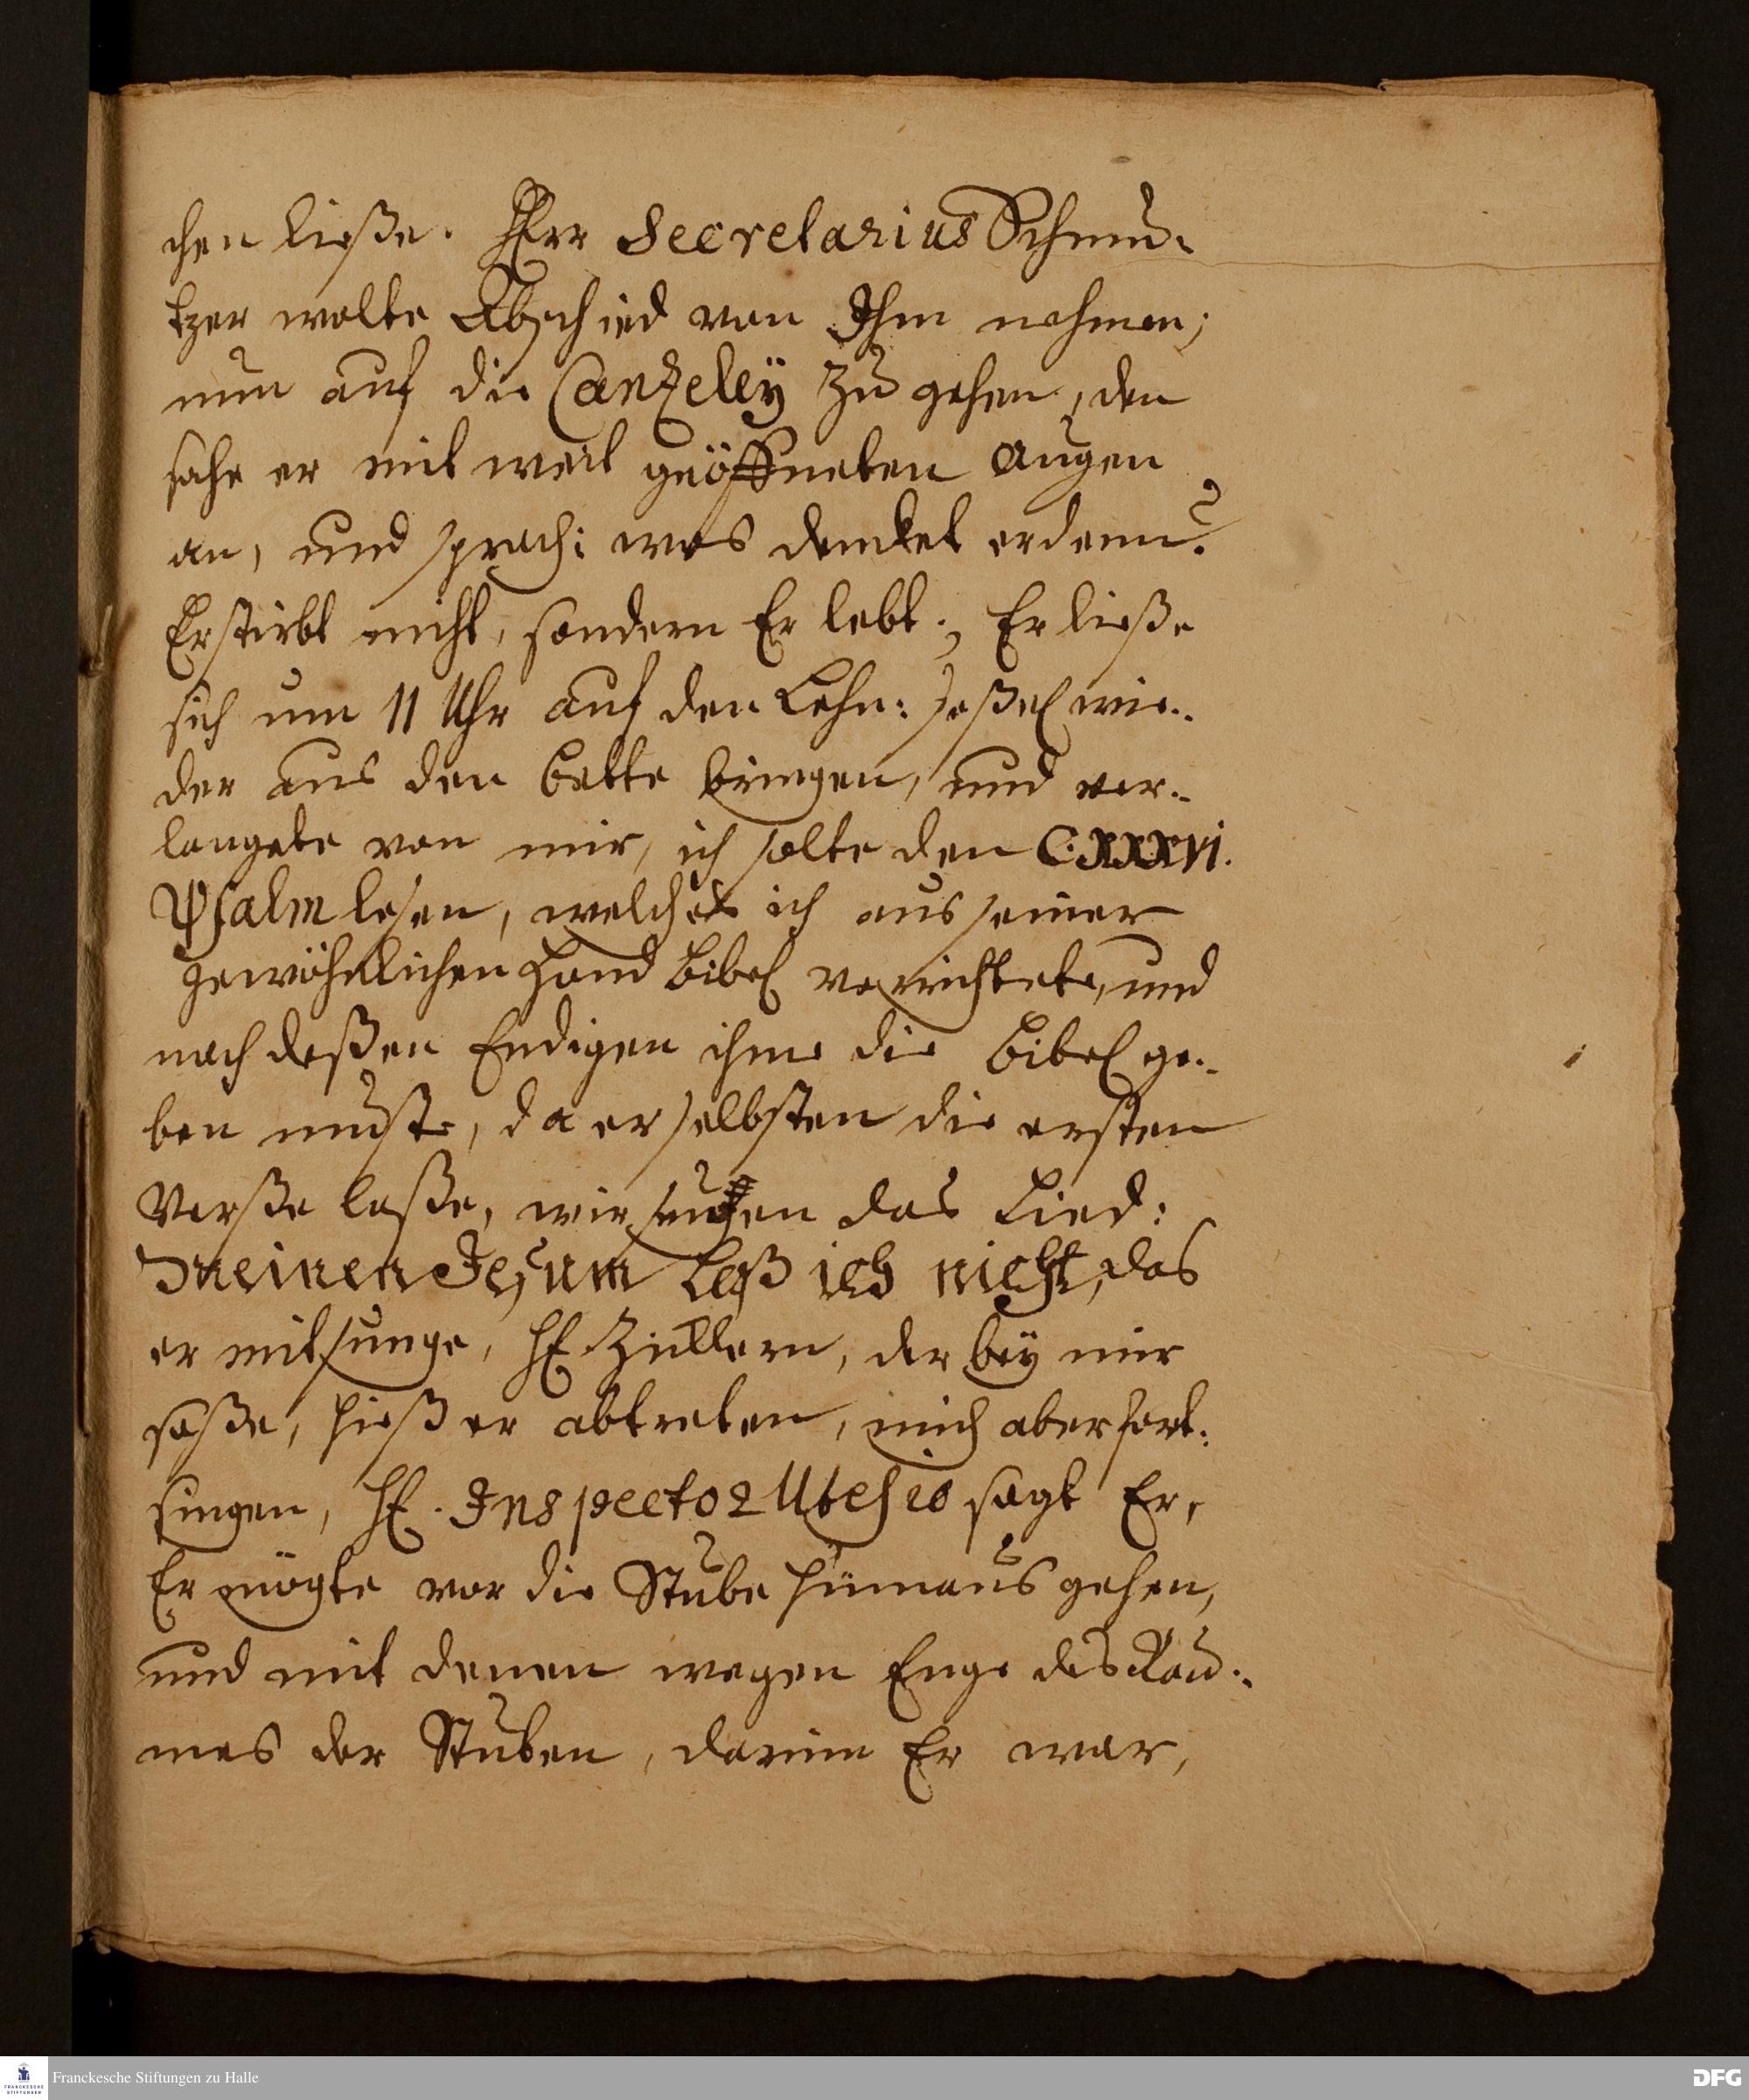 chen ließe. HErr Secretarius Schmu-
tzer wolte Abschied von Ihm nehmen;
nun auf die Cantzeley zu gehen, den
sahe er mit weit geöffneten Augen
an, und sprach: was dencket er denn?
Er stirbt nicht, sondern Er lebt; Er ließe
sich um 11 Uhr auf den Lehn: Seßel wie-
der aus den Bette bringen, und ver-
langete von mir, ich solte den C.XXXVI.
Psalm lesen, welches ich aus seiner
gewöhnlichen Hand Bibel verrichtete, und
nach deßen Endigen ihme die Bibel ge-
ben muste, da er selbsten die ersten
Verße laße, wir sungen das Lied:
Meinen Jesum Laß ich nicht, das
er mit sunge, H. Zillern, der bey mir
saße, hieß er abtreten, mich aber fort-
singen, H. Inspector Utesio sagt Er,
Er mögte vor die Stube hinnaus gehen,
und mit denen wegen Enge des Rau-
mes der Stuben, darinn Er war,
Franckesche Stiftungen zu Halle
DFG